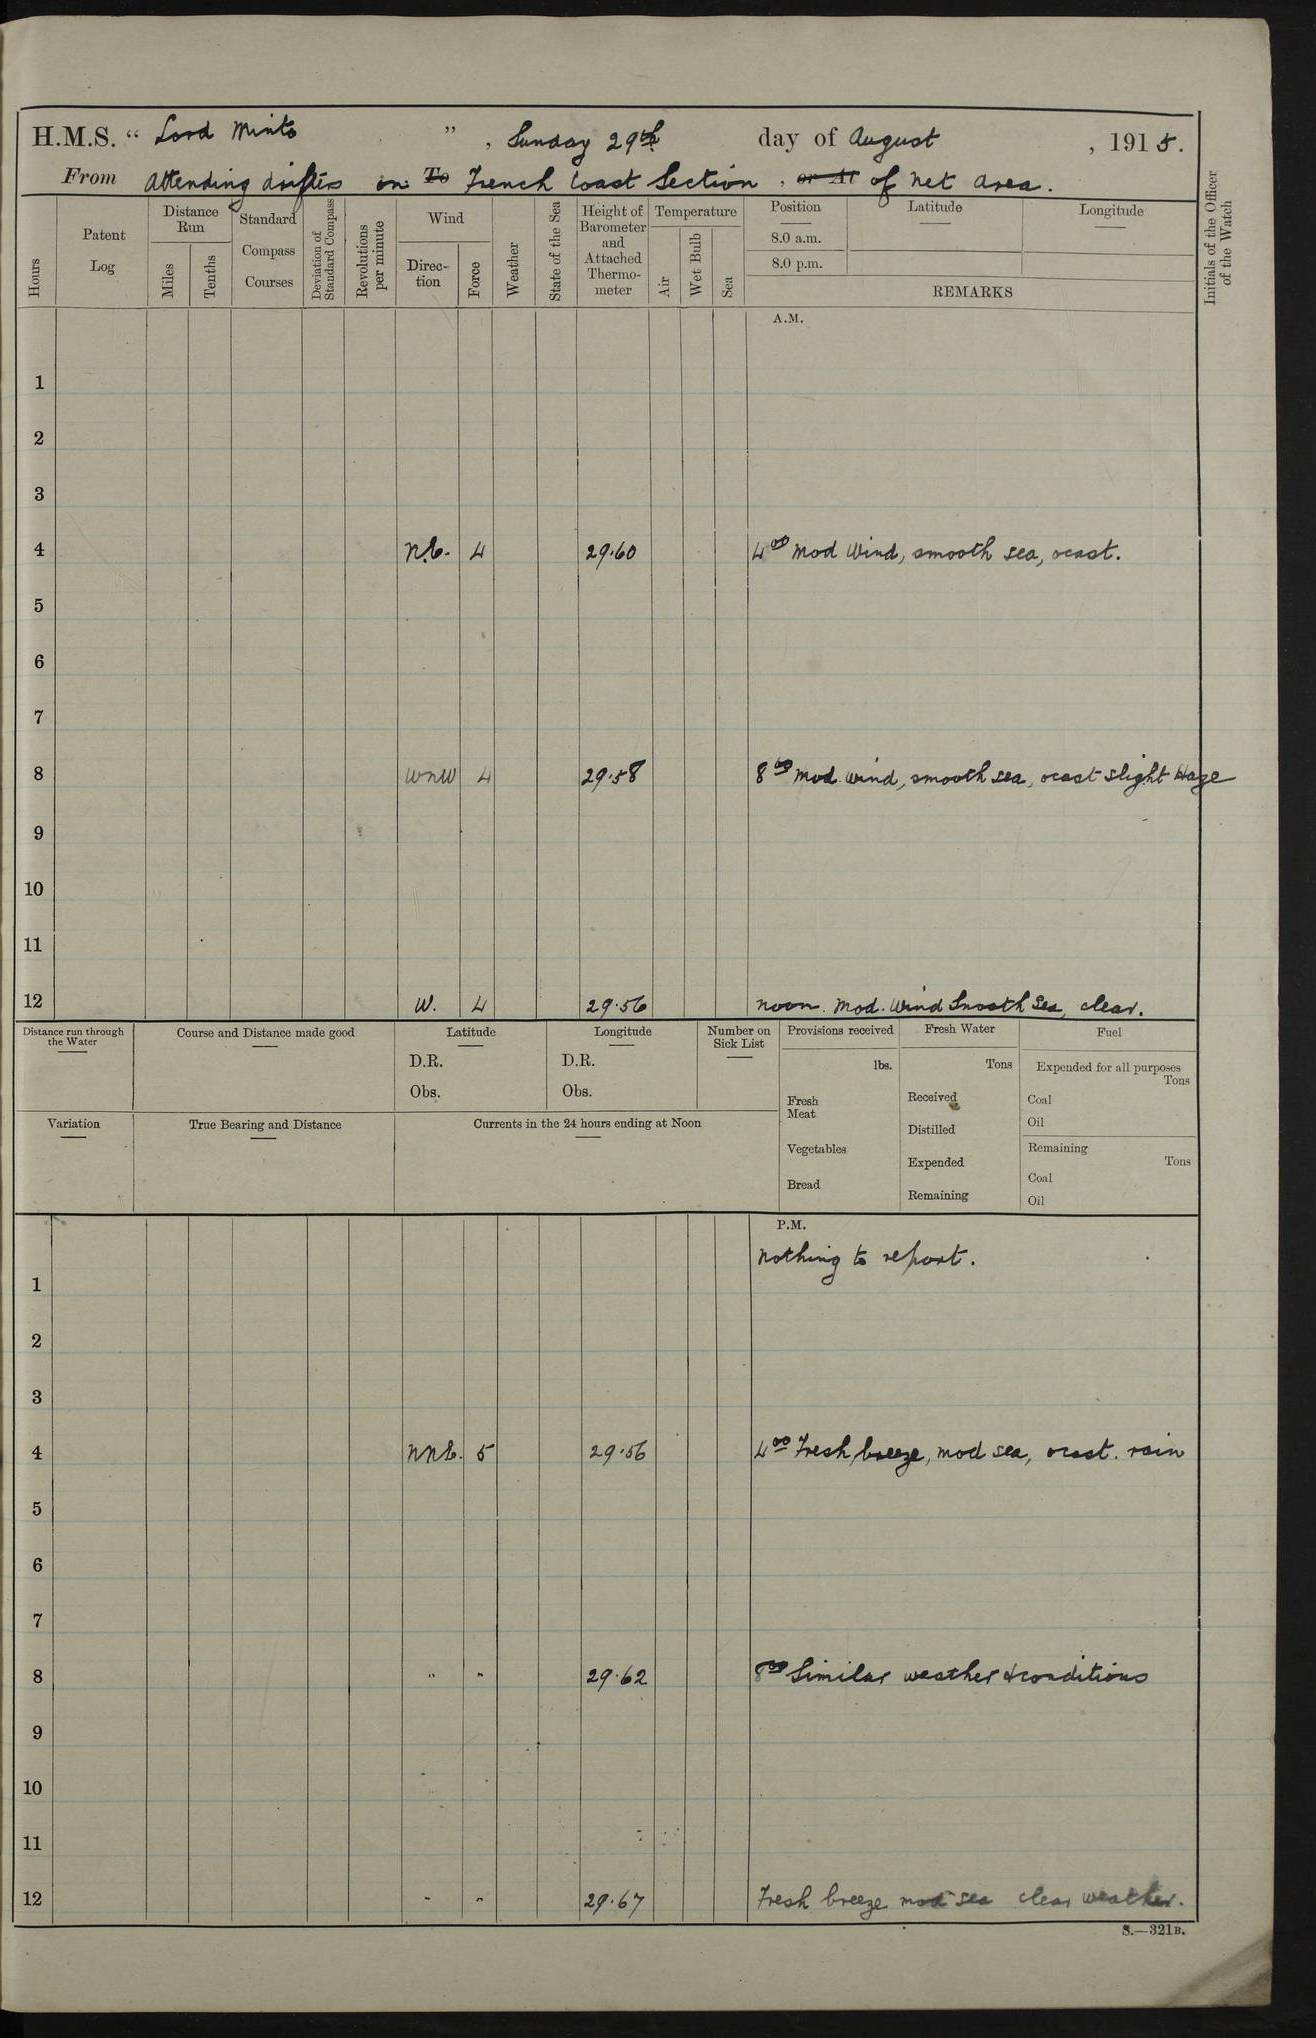 H.M.S. “ Lord Minto ” , Sunday 29th day of August , 1915.
From Attending drifters on To French Coast Section , or At of Net Area.
Hours
Patent Log
Distance Run
Miles
Tenths
Standard Compass Courses
Deviation of Standard Compass
Revolutions per minute
Wind
Direc-tion
Force
Weather
State of the Sea
Height of Barometer and Attached Thermo-meter
Temperature
Air
Wet Bulb
Sea
Position Latitude Longitude
8.0 a.m.
8.0 p.m.
REMARKS
Initials of the Officer of the Watch
A.M.
1
2
3
4 NE. 4 29.60 4 00 Mod Wind, smooth sea, ocast.
5
6
7
8 WNW 4 29.58 8 00 Mod. Wind, smooth sea, ocast slight Haze
9
10
11
12 W. 4 29.56 Noon. Mod. Wind Smooth Sea, clear.
Distance run through the Water
Course and Distance made good
Latitude
D.R.
Obs.
Longitude
D.R.
Obs.
Number on Sick List
Variation
True Bearing and Distance
Currents in the 24 hours ending at Noon
Provisions received
lbs.
Fresh Meat
Vegetables
Bread
Fresh Water
Tons
Received
Distilled
Expended
Remaining
Fuel
Expended for all purposes
Tons
Coal
Oil
Remaining
Tons
Coal
Oil
P.M.
Nothing to report.
1
2
3
4 NNE. 5 29.56 4 00 Fresh breeze, mod sea, ocast. rain
5
6
7
8 " " 29.62 8 00 Similar weather & conditions
9
10
11
12 " " 29.67 Fresh breeze mod sea clear weather.
S.—321B.